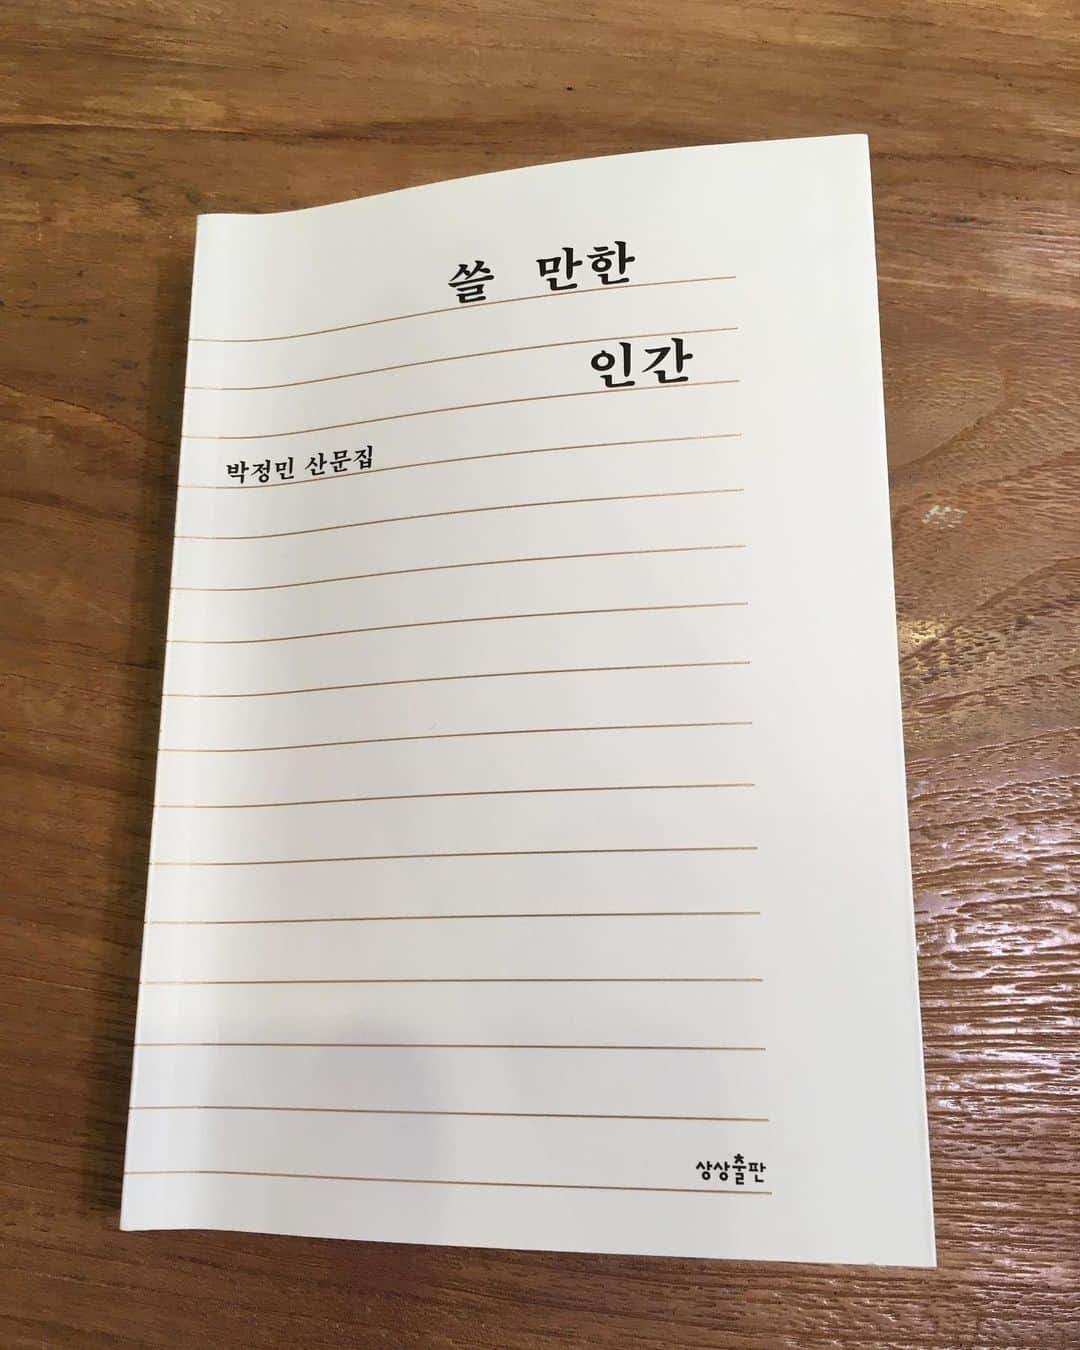 쓸 만한
인간
박정민 산문집
상상출판